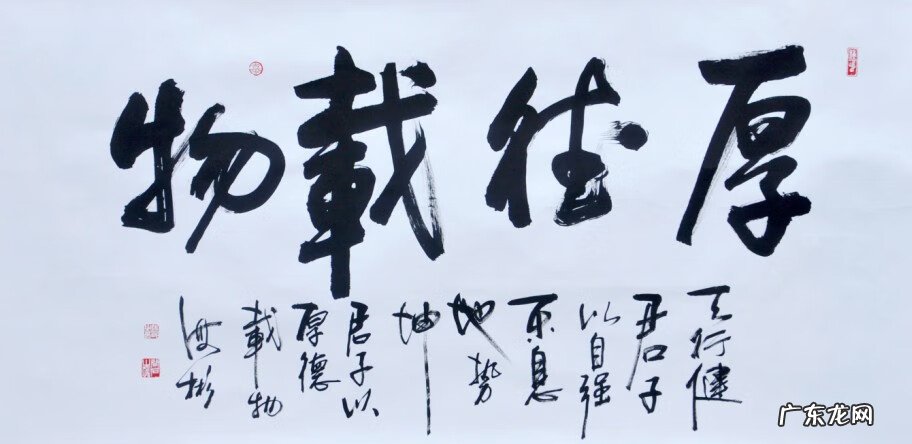 厚德載物
天行健
君子
以自强
不息
地势
坤
君子以
厚德
載物
广东龙网